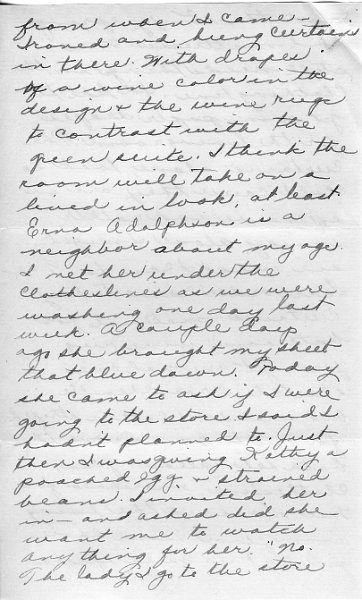 from when I came -
Ironed and hung curtains
in there. With drapes
of a wine color in the
design & the wine rugs
to contrast with the
green suite. I think the
room will take on a
lived in look, at least.
Erna Adolphson is a
neighbor about my age.
I met her under the
clotheslines as we were
washing one day last
week. A couple days
ago she brought my sheet
that blew down. Today
she came to ask if I were
going to the store I said I
hadn't planned to. Just
then I was giving Kathy a
poached egg & strained
beans. I invited her
in - and asked did she
want me to watch
anything for her. "No.
The lady I go to the store